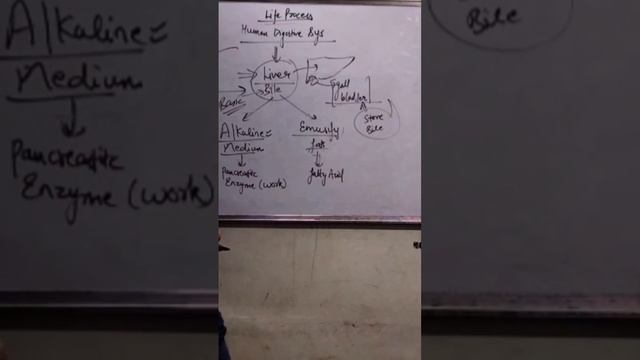 Life Process
Human Digestive Sys
Liver
Bile
Basic
gall
bladder
Store
Bile
Alkaline
Medium
Pancreatic
Enzyme (work)
Emusify
fats
fatty Acid
Alkaline
Medium
Pancreatic
Enzyme (work)
Store
Bile